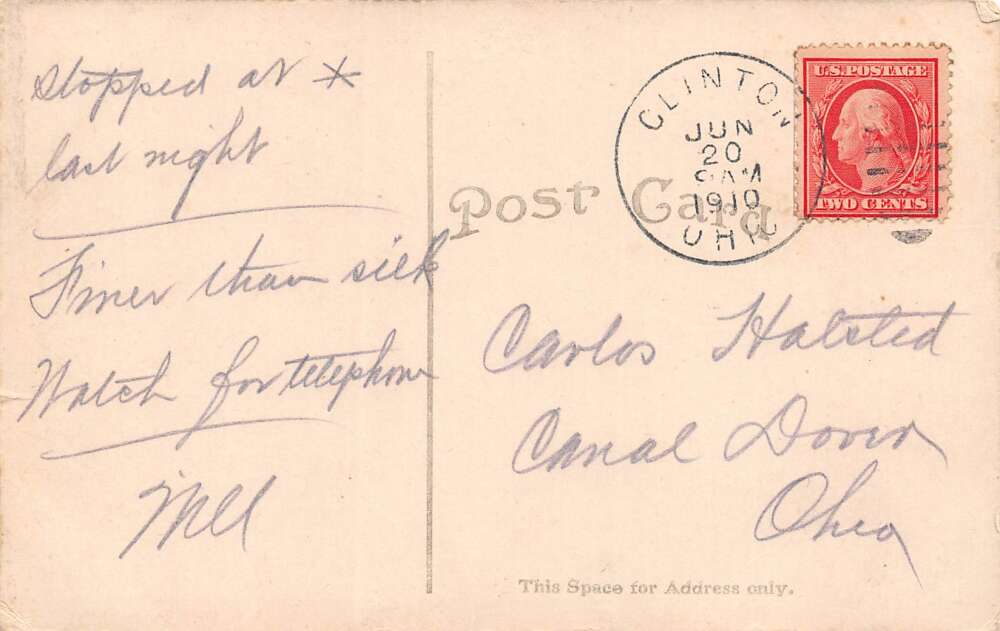 Stopped at *
last night
Finer than silk
Watch for telephone
Mell
Post Card
CLINTON
JUN
20
AM
1910
OHIO
U.S. POSTAGE
TWO CENTS
Carlos Halsted
Canal Dover
Ohio
This Space for Address only.